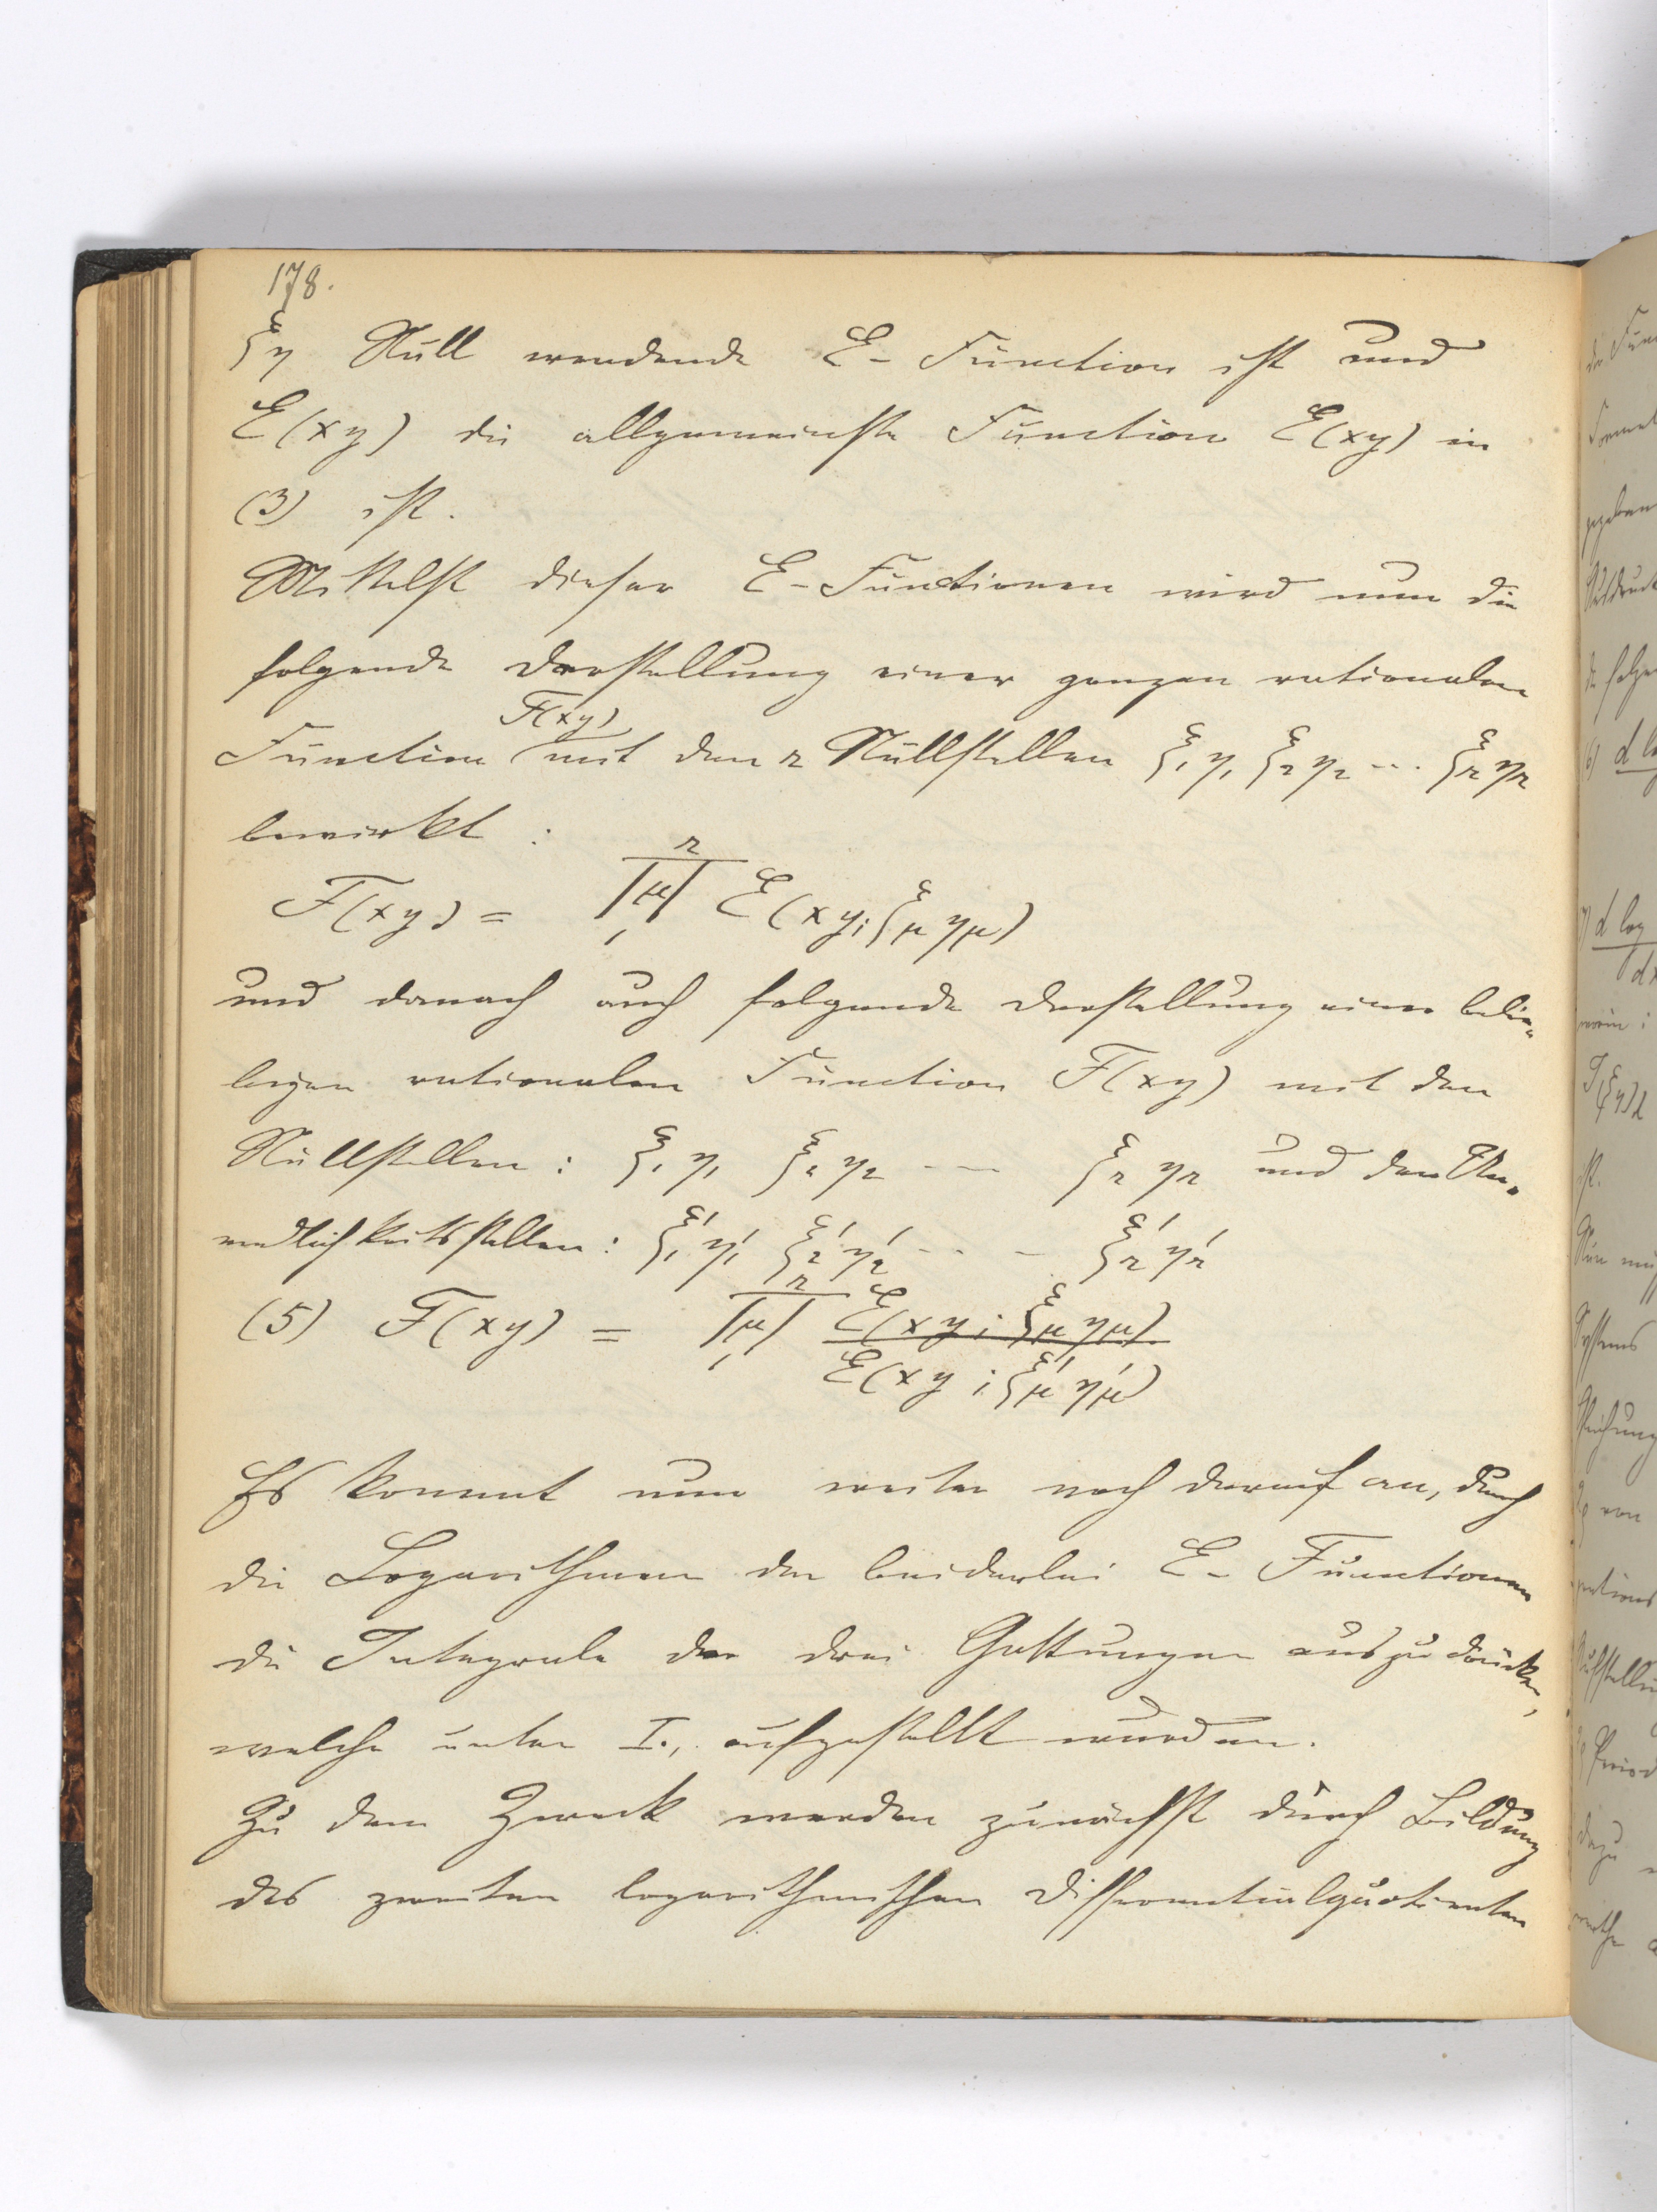 178.
ξη Null werdende E-Function ist und
E(xy) die allgemeinste Function E(xy) in
(3) ist.
Mittelst dieser E-Functionen wird nun die
folgende Darstellung einer ganzen rationalen
F(xy)
Function mit den r Nullstellen ξ₁η₁ ξ₂η₂ ... ξᵣηᵣ
bewirkt :
F(xy) = ∏μ₁ʳ E(xy; ξμ ημ)
und danach auch folgende Darstellung einer belie-
bigen rationalen Function F(xy) mit den
Nullstellen : ξ₁η₁ ξ₂η₂ --- ξᵣηᵣ und den Un-
endlichkeitsstellen : ξ₁'η₁' ξ₂'η₂' --- ξᵣ'ηᵣ'
(5) F(xy) = ∏μ₁ʳ E(xy; ξμ ημ)
E(xy; ξμ' ημ')
Es kommt nun weiter noch darauf an, durch
die Logarithmen der beiderlei E-Functionen
die Integrale der drei Gattungen auszudrücken,
welche unter I., aufgestellt wurden.
Zu dem Zweck werden zunächst durch Bildung
des zweiten logarithmischen Differentialquotienten